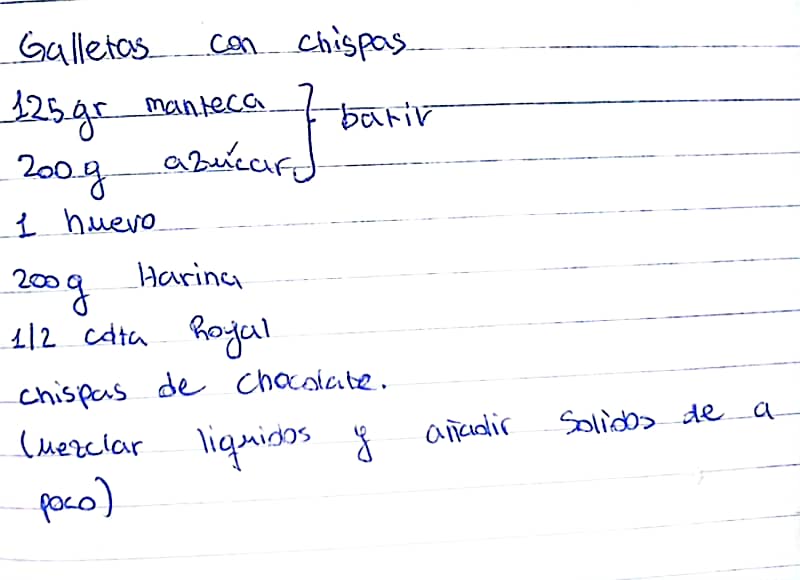 Galletas con chispas
125gr manteca } batir
200g azúcar
1 huevo
200g Harina
1/2 cdta Royal
chispas de chocolate.
(mezclar liquidos y añadir solidos de a
poco)